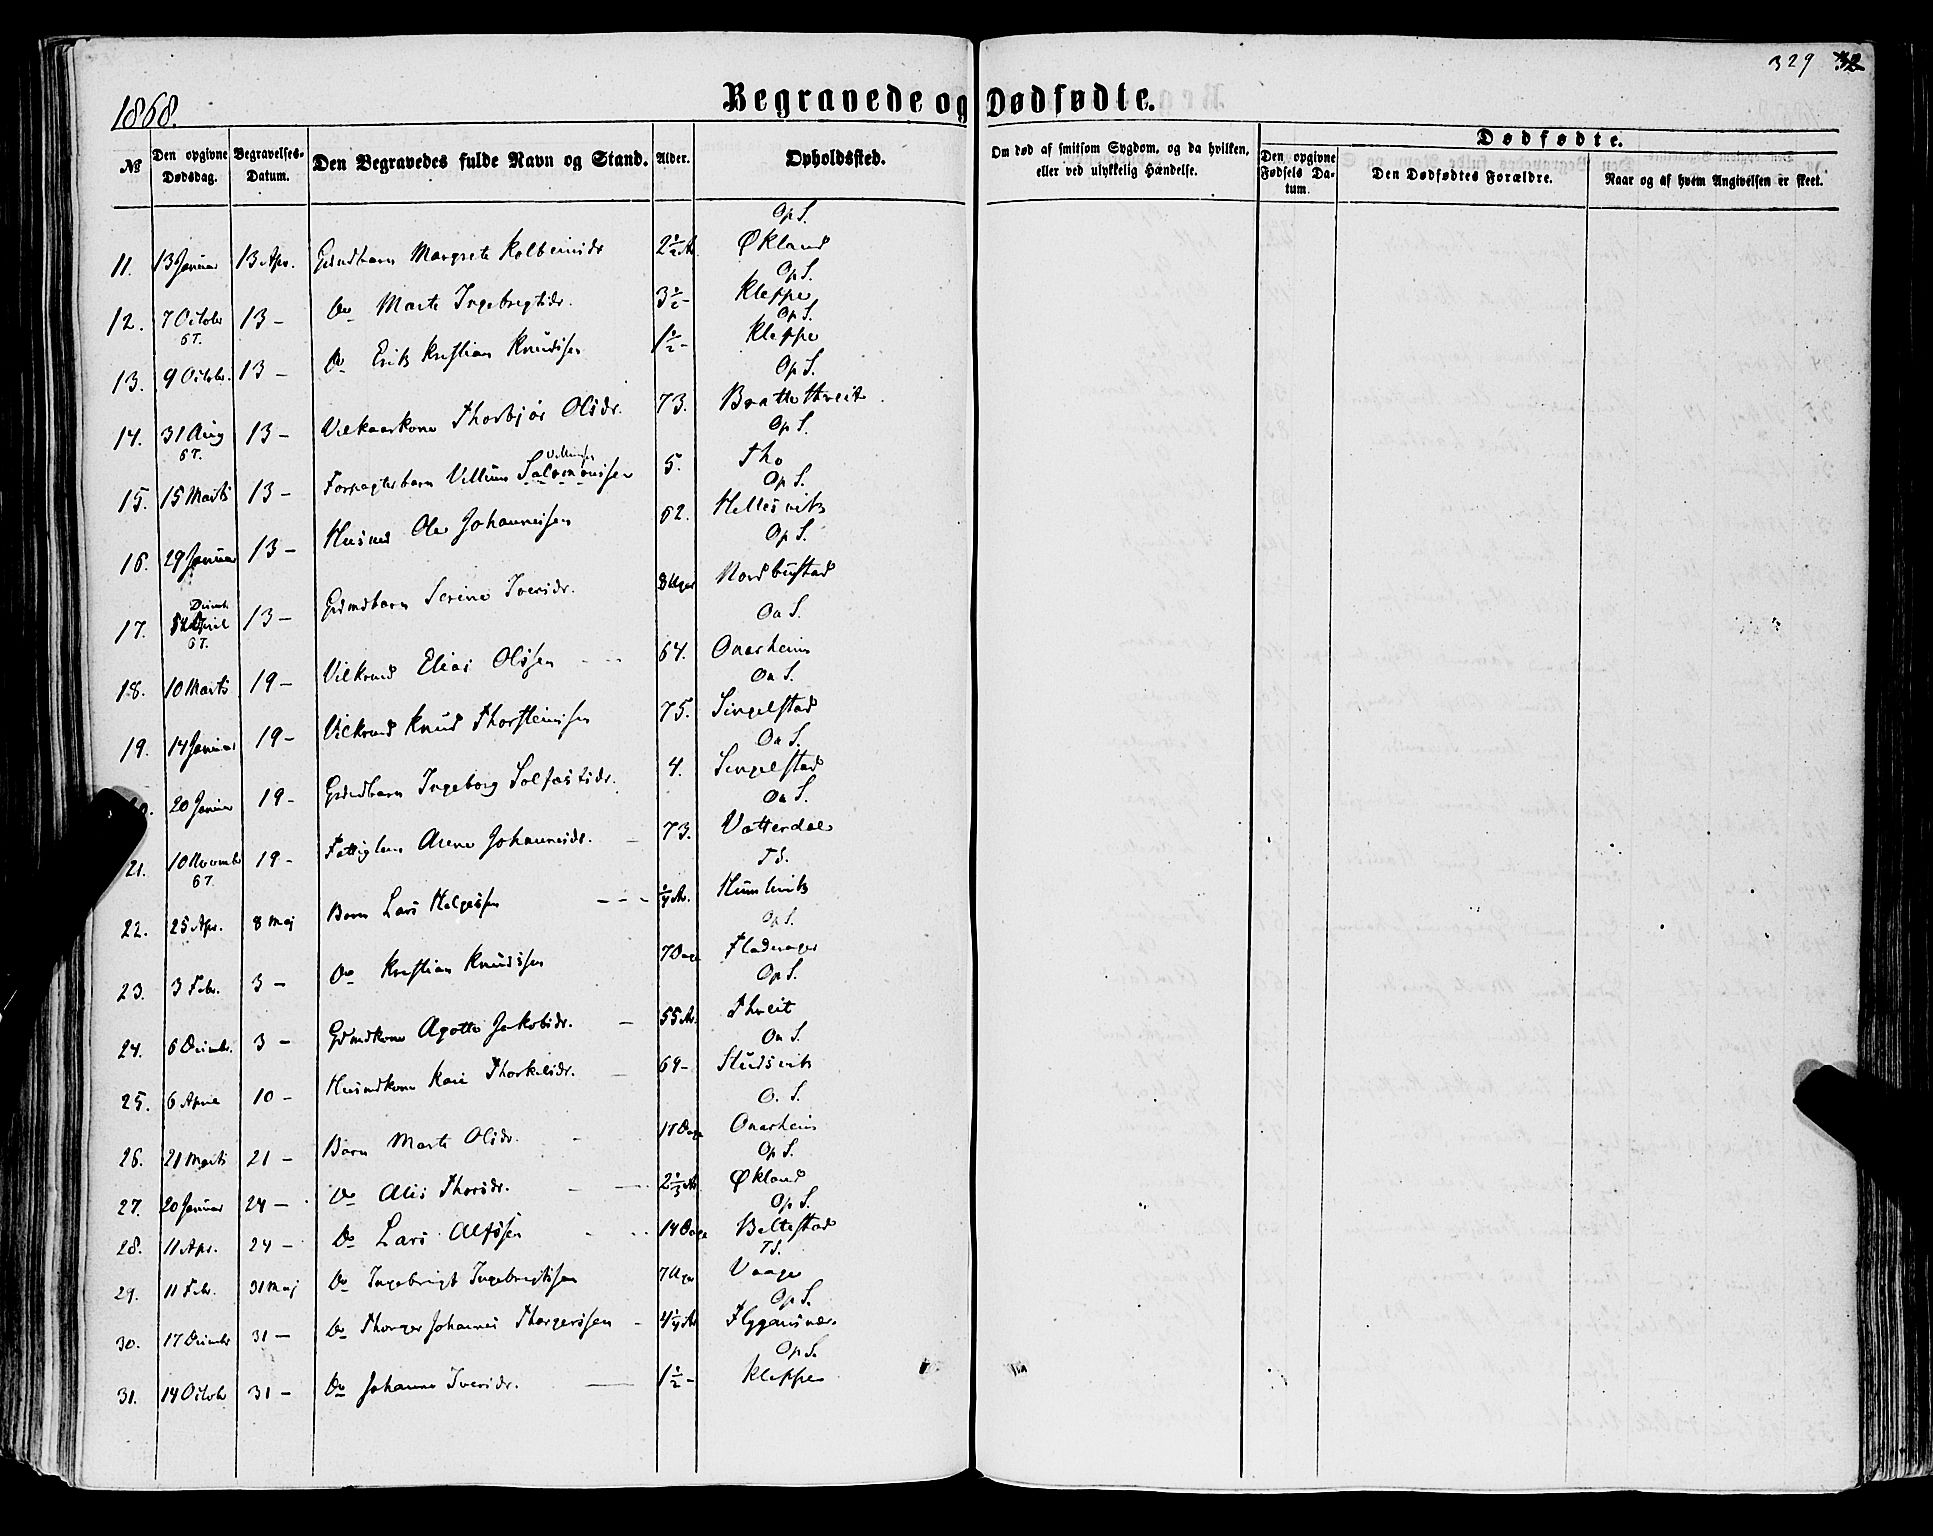 329 32
1868.
Begravede og Dødfødte.
Dødfødte.
№
Den opgivne Dødsdag.
Begravelses-Datum.
Den Begravedes fulde Navn og Stand.
Alder.
Opholdssted.
Om død af smitsom Sygdom, og da hvilken, eller ved ulykkelig Hændelse.
Den opgivne Fødsels Da-tum.
Den Dødfødtes Forældre.
Naar og af hvem Angivelsen er skeet.
Op S.
11. 13 Januar 13 Apr. Gdmdbarn Margrete Kolbeinsdr 2½ Ar Økland
Op S.
12. 7 Octobr 67. 13 – Do Marte Ingebregtsdr. 3½ – Kleppe
Op S.
13. 9 Octobr. 13 – Do Erik Kristian Knudssen 1½ – Kleppe
Op S.
14. 31 Aug 67. 13 – Vilkaarkone Thorbjør Olsdr. 73. Brattethveit
Op S.
15. 15 Marts 13 – Forpagterbarn Villum Salomonssen 5. Tho
Op S.
16. 29 Januar 13 – Husmd Ole Johannessen 62. Hellesvik
Op S.
17. April 67. 13 – Gdmdbarn Serine Iversdr. 8 Uger Nordbustad
On S.
18. 10 Marts 19 – Vilkrmd Elias Olssen 64. Onarheim
On S.
19. 14 Januar 19 – Vilkrmd Knud Thorsteinssen 75. Singelstad
On S.
20 Januar 19 – Gdmdbarn Ingeborg Solfæstsdr. 4. Singelstad
On S.
21. 10 Novembr 67 19 – Fattiglem Arene Johannesdr. 73. Vatterdal
Ts.
22. 25 Apr. 8 Maj Barn Lars Helgessen ¼ Ar. Humlevik
Op S.
23. 3 Febr. 3 – Do Kristian Knudssen 7 Dage Fladerager
Op S.
24. 6 Decembr. 3 – Gdmdkone Agotte Jakobsdr. 55 Ar. Thveit
On S.
25. 6 April 10 – Husmdkone Kari Thorkelsdr. 69 – Studsvik
O. S.
26. 21 Marts 21 – Barn Marte Olsdr. 17 Dage Onarheim
Op S.
27. 20 Januar 24 – Do Alis Thorsdr. 2⅓ Ar Økland
Op S.
28. 11 Apr. 24 – Do Lars Alfssen 14 Dage Beltestad
Ts.
29. 11 Febr. 31 Maj Do Ingebrigt Ingebrigtssen 7 Uger Vaage
Op S.
30. 17 Decembr 31 – Do Thorger Johannes Thorgerssen 4¼ Ar Flygansvær
Op S.
31. 14 Octobr 31 – Do Johanne Iversdr. 1½ – Kleppe